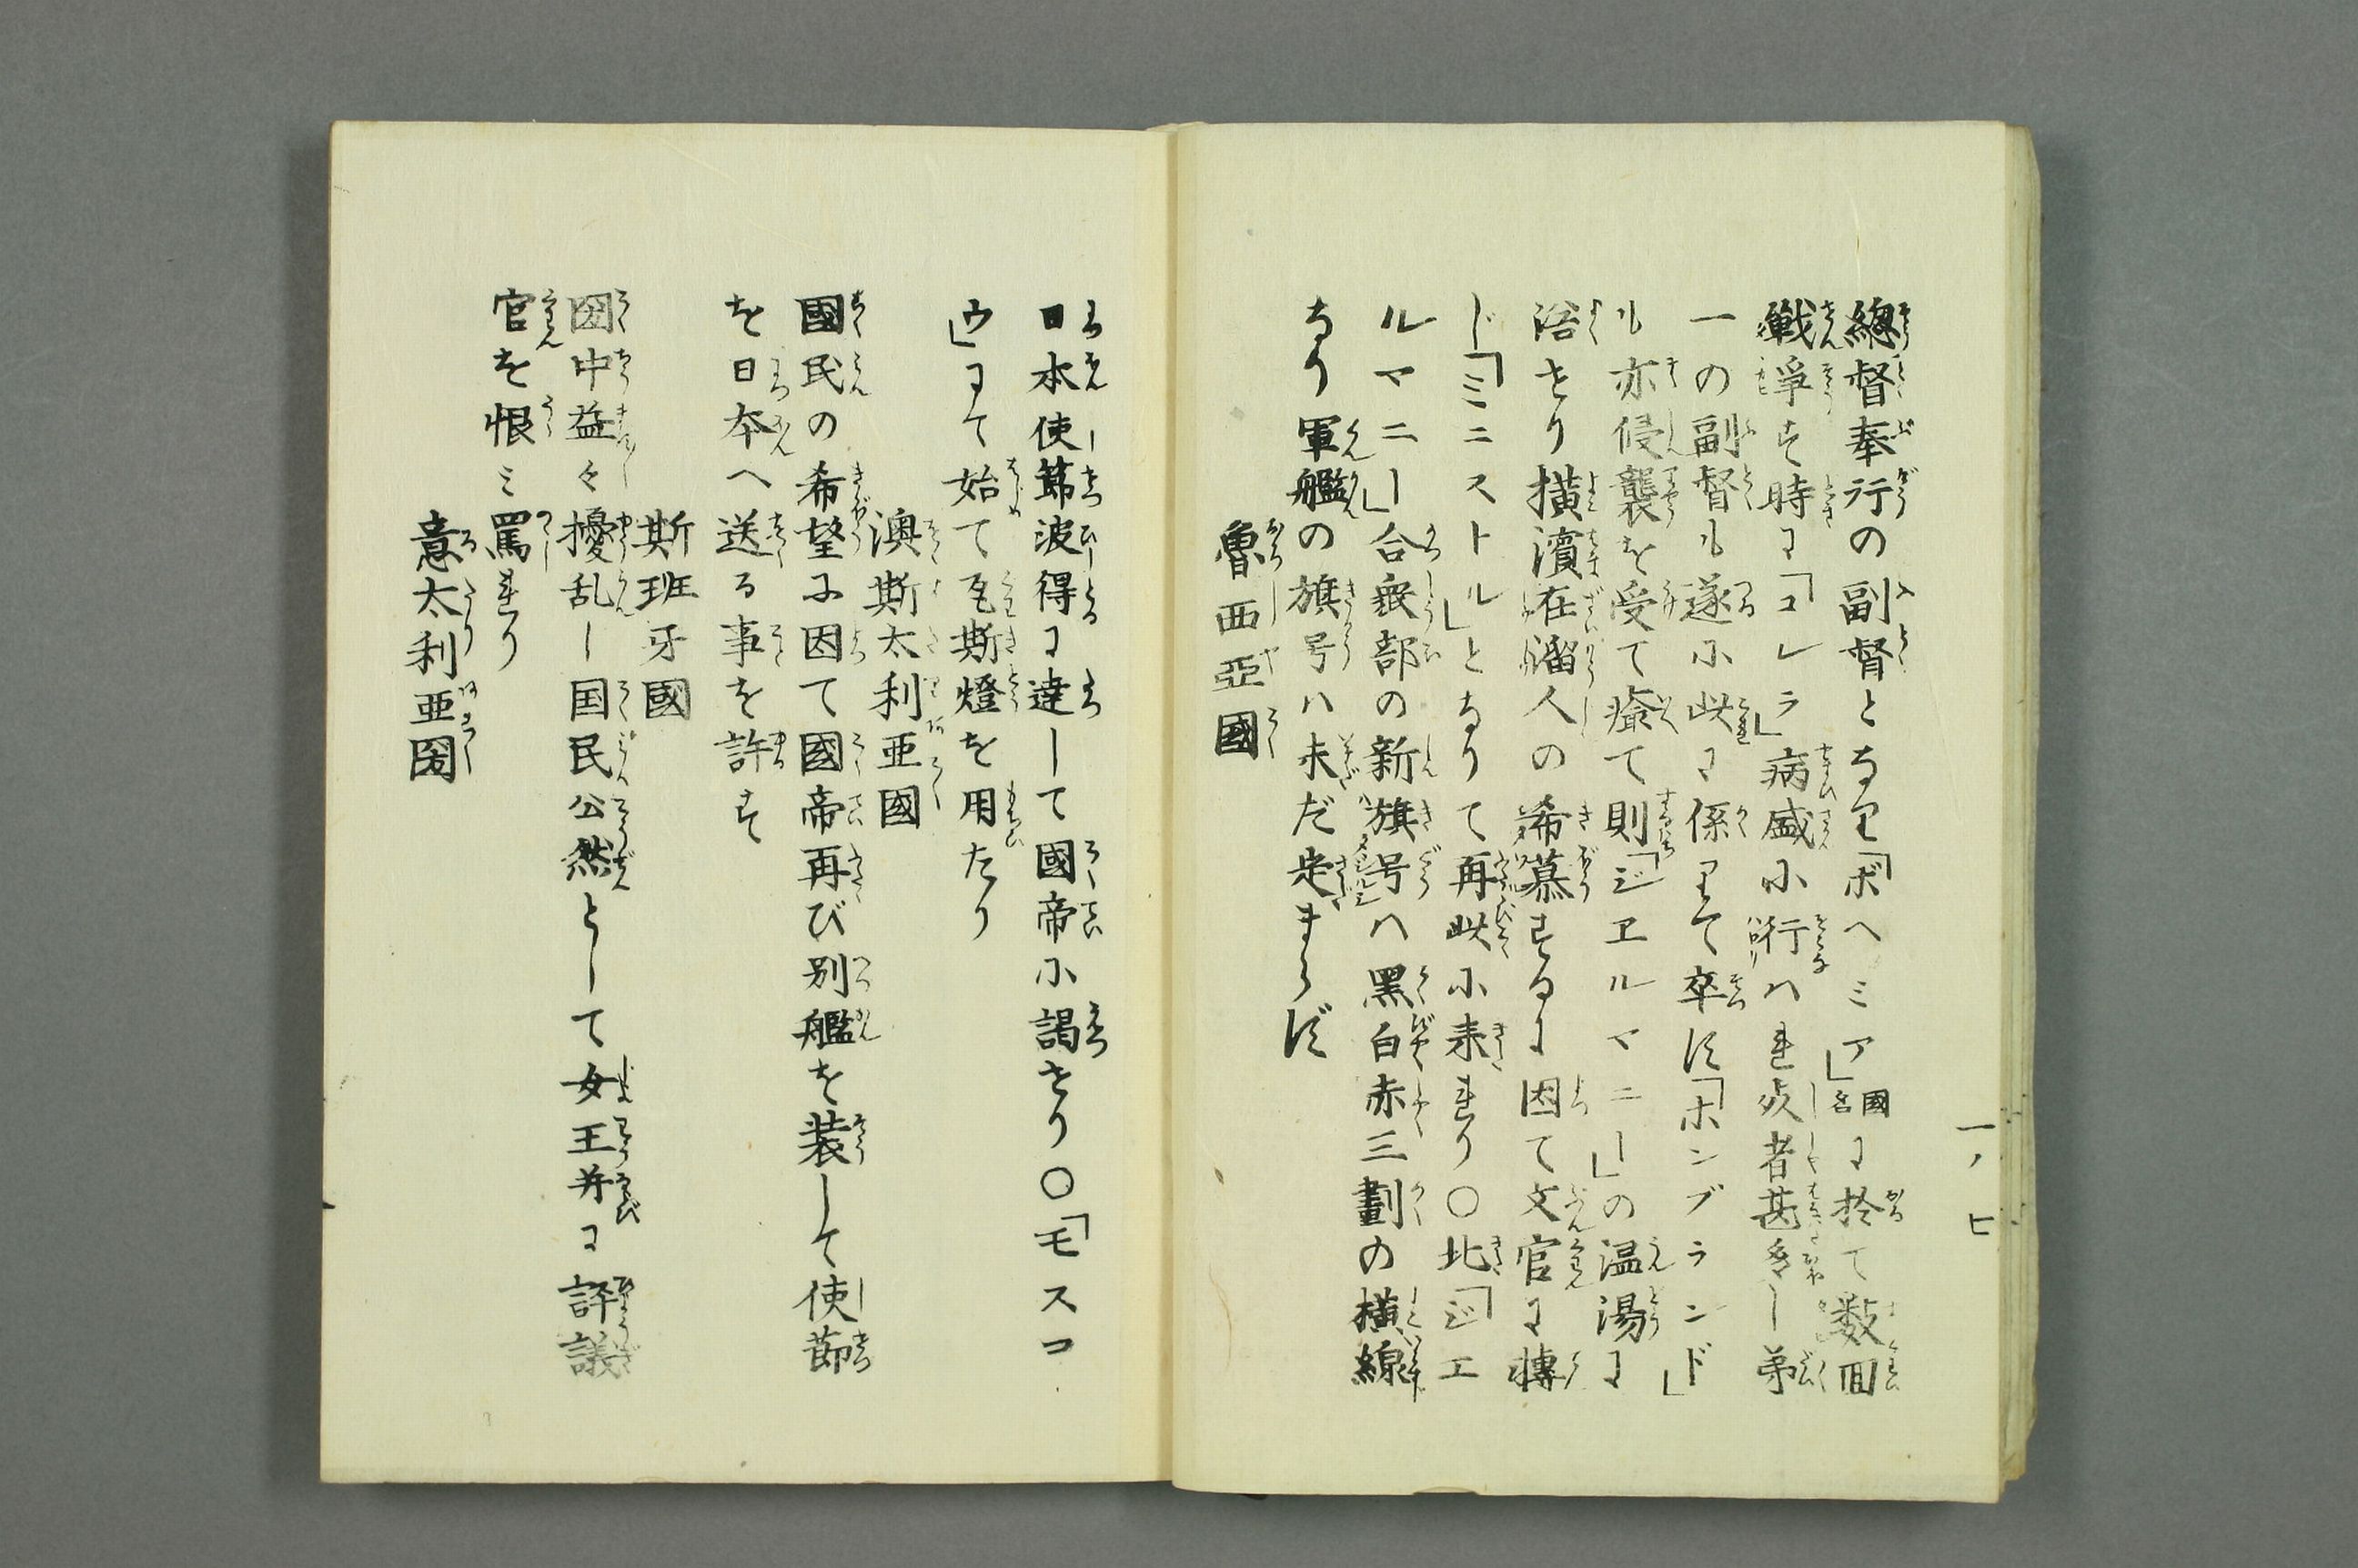 總督奉行の副督となり「ボヘミア」國名に於て数回
戦爭す時に「コレラ」病盛に行はれ死者甚多し第
一の副督も遂に此に係りて卒す「ホンブランド」
も亦侵襲を受て癒て則「ジエルマニー」の温湯に
浴せり横濱在溜人の希慕するに因て文官に轉
じ「ミニストル」となりて再此に来れり〇北「ジエ
ルマニー」合衆部の新旗号ハ黒白赤三劃の横線
なり軍艦の旗号ハ未だ定まらず
魯西亞國
一ノ七
日本使節波得に達して國帝に謁せり〇「モスコ
ウ」にて始て瓦斯燈を用たり
澳斯太利亜國
國民の希望に因て國帝再び別艦を装して使節
を日本へ送る事を許す
斯班牙國
国中益々擾乱し国民公然として女王并に評議
官を恨ミ罵れり
意太利亜国